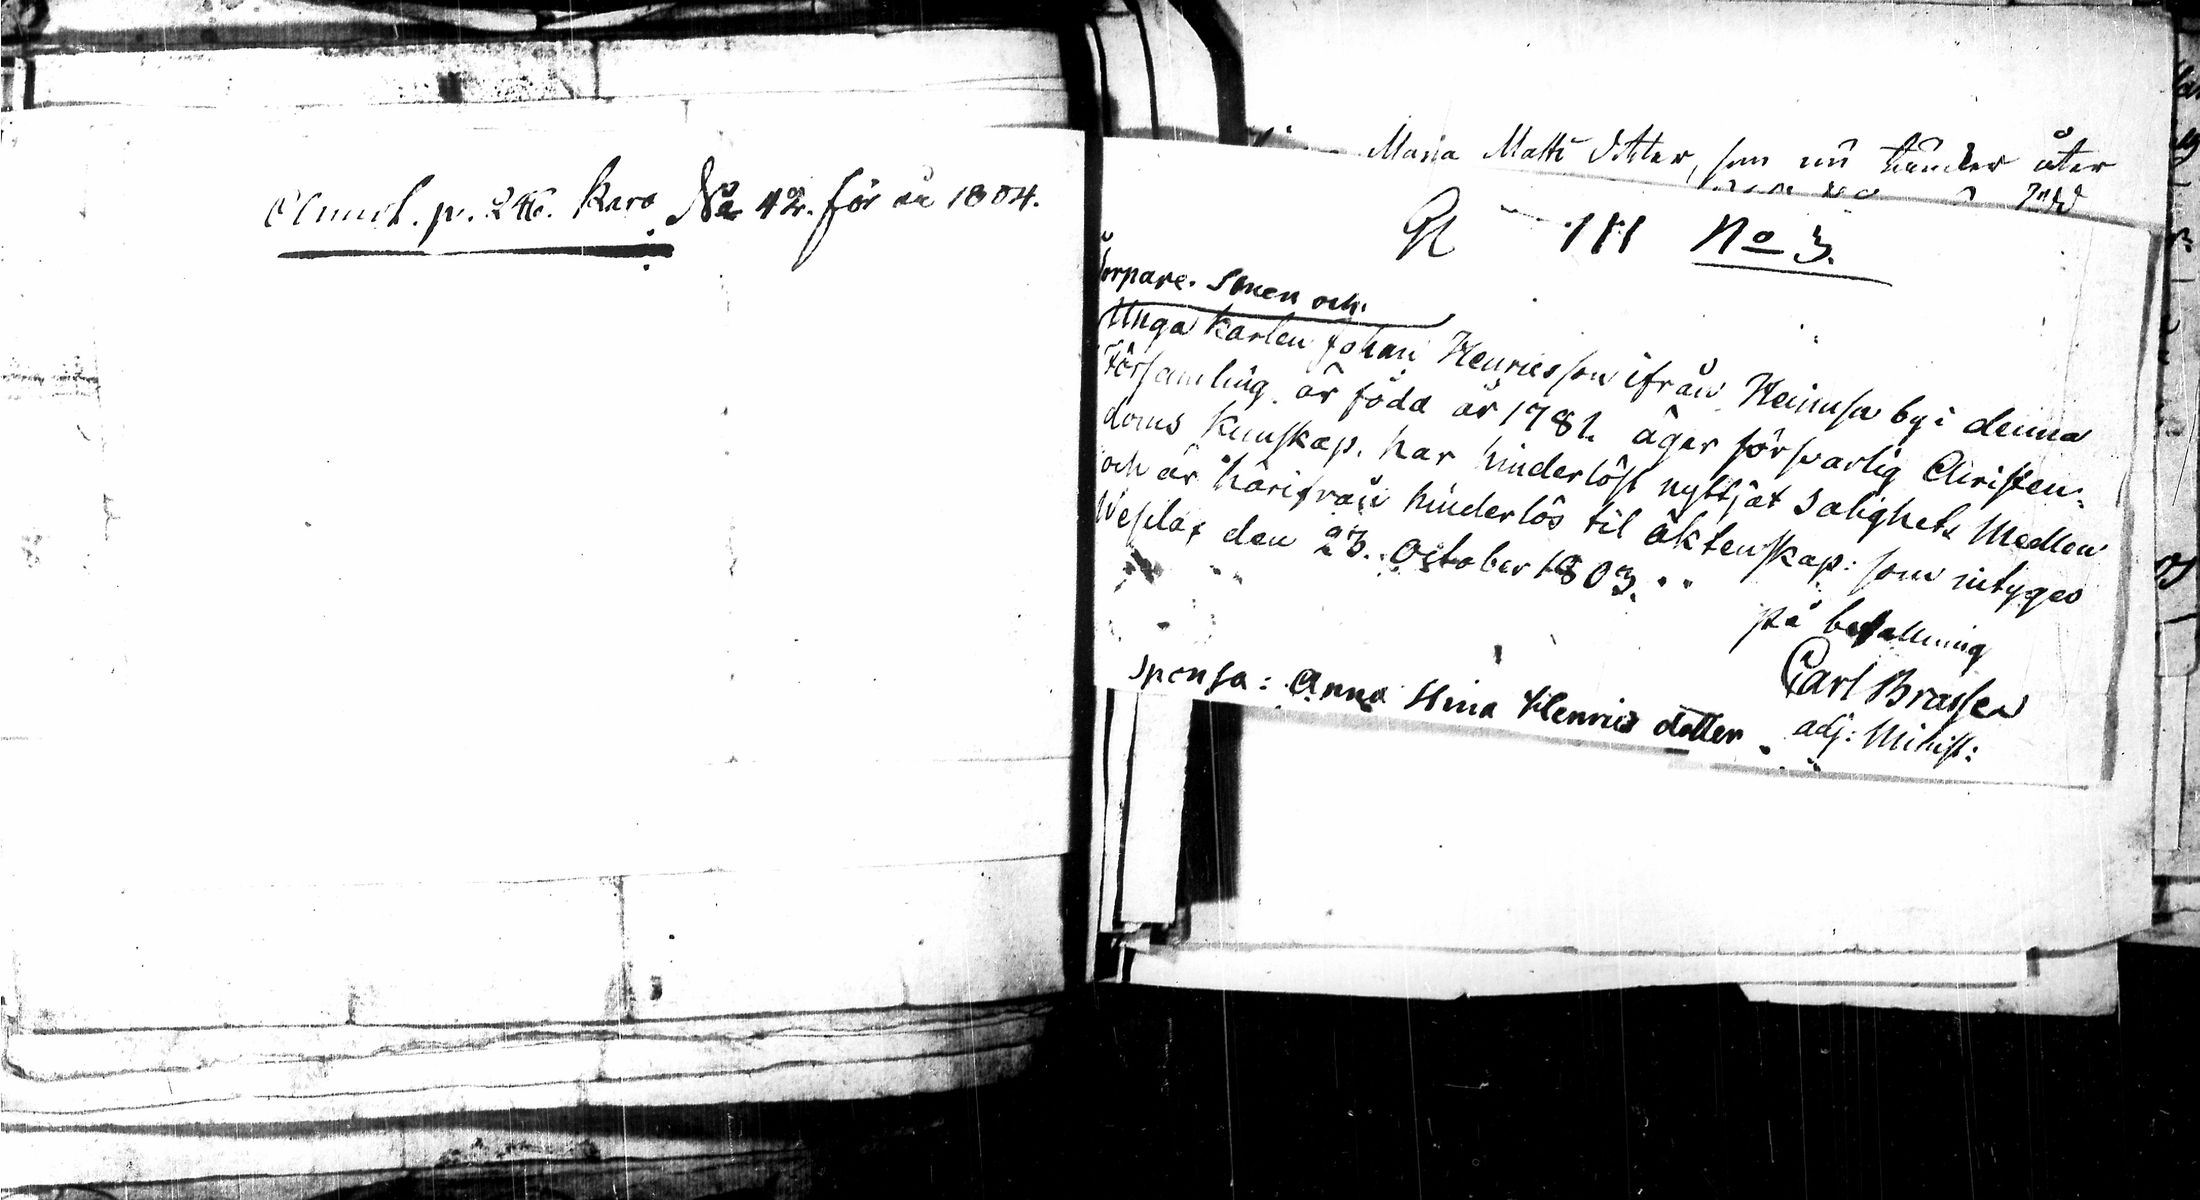 Annot. p. 246. Karo No 42. för år 1804.
Maria Matts Dotter, som nu tänker åter
No 3.
Torpare. Sonen och.
Unga Karlen Johan Henricsson ifrån Heimsa by i denna
Församling. är född år 1781. äger försvarlig Christen:
doms Kunskap. har hinderlöst nyttjat Salighets Medlen
och är härifrån hinderlös til äktenskap: som intyges
Weslax den 23. October 1803.
på befallning
Carl Brassen
adj: Minist:
Sponsa: Anna Stina Henrics dotter